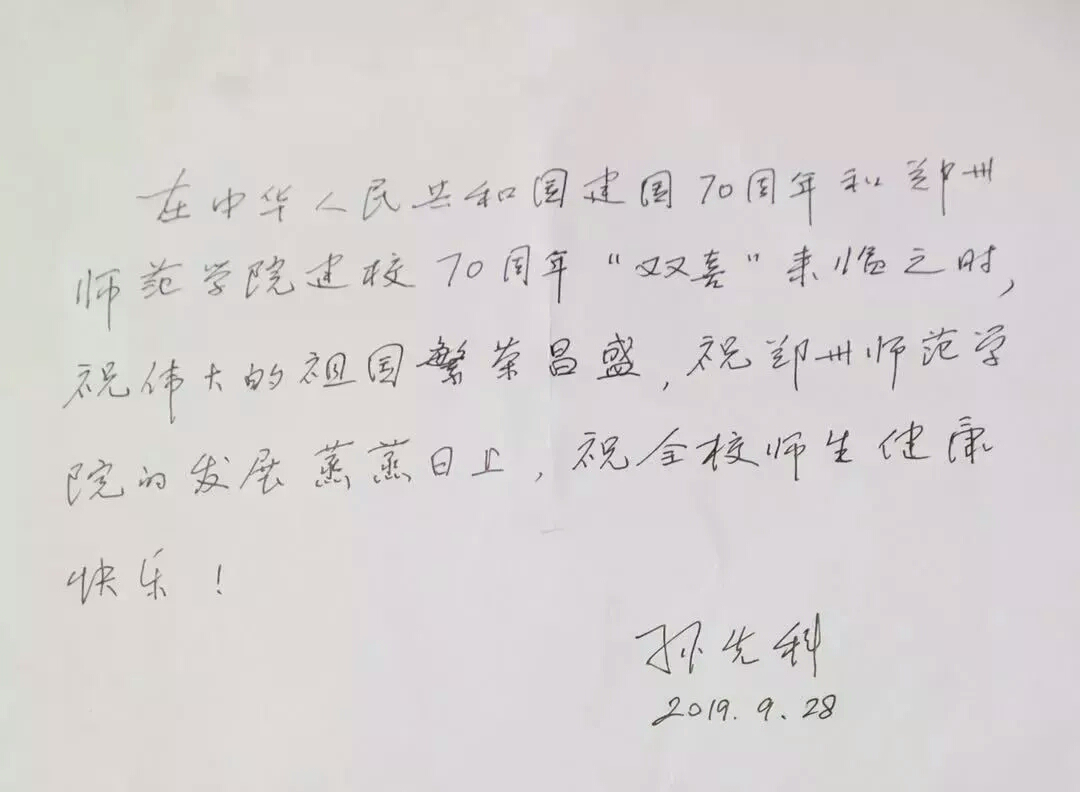 在中华人民共和国建国70周年和郑州
师范学院建校70周年“双喜”来临之时,
祝伟大的祖国繁荣昌盛,祝郑州师范学
院的发展蒸蒸日上,祝全校师生健康
快乐!
孙先科
2019.9.28